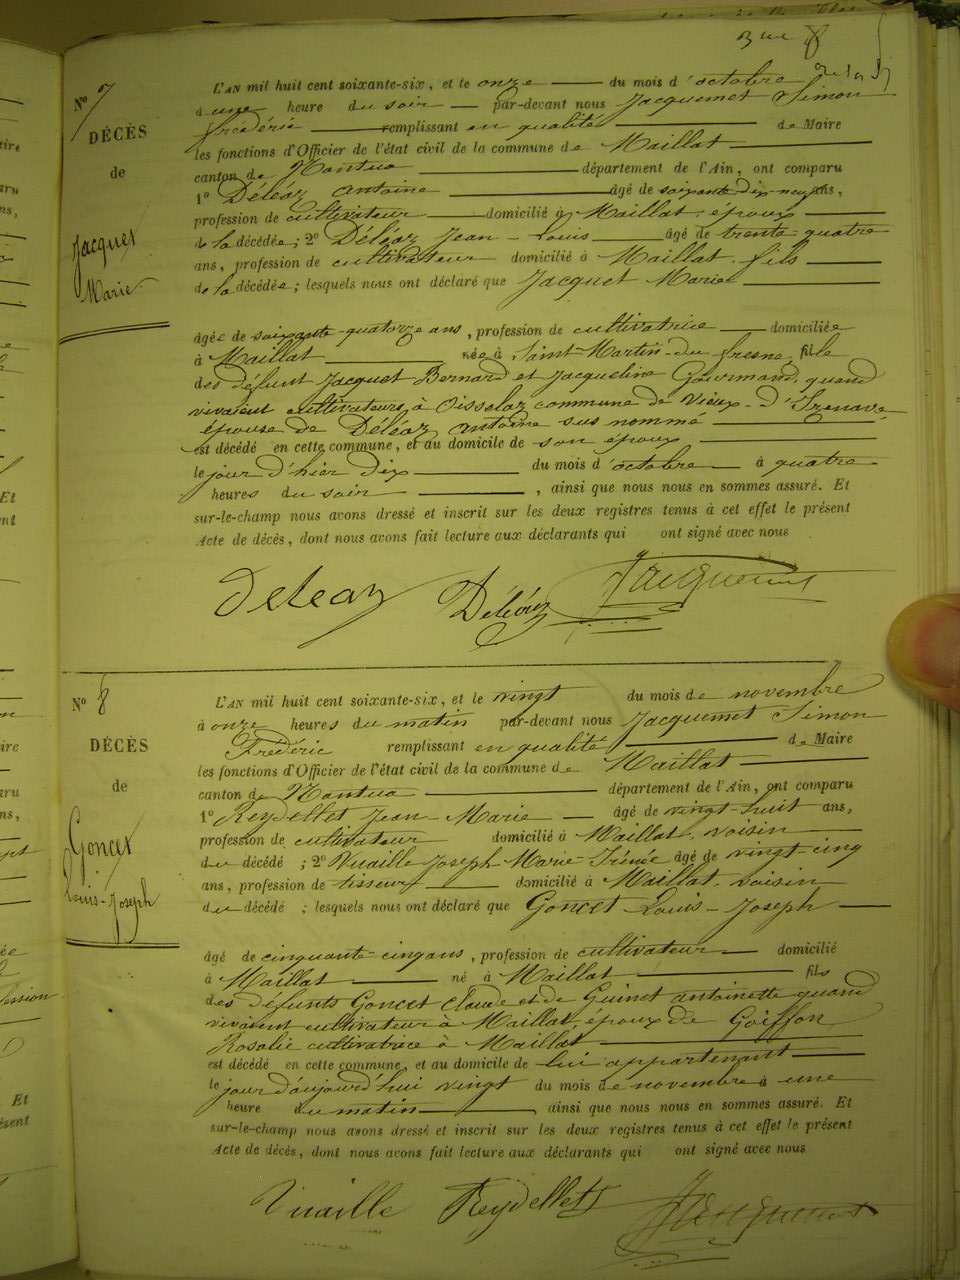 3me 8
Nº 7
DÉCÈS
de
Jacquet
Marie
L'AN mil huit cent soixante-six, et le onze du mois d'octobre
à une heure du soir par-devant nous Jacquemet Simon
frédéric remplissant en qualité de Maire
les fonctions d'Officier de l'état civil de la commune de Maillat
canton de Nantua département de l'Ain, ont comparu
1º Déléaz antoine âgé de soixante-dix-neuf ans,
profession de cultivateur domicilié à Maillat, époux
de la décédée; 2º Déléaz Jean-Louis âgé de trente-quatre
ans, profession de cultivateur domicilié à Maillat, fils
de la décédée; lesquels nous ont déclaré que Jacquet Marie
âgée de soixante-quatorze ans, profession de cultivatrice domiciliée
à Maillat née à Saint-Martin-du fresne, fille
des défunt Jacquet Bernard et Jacqueline Gourmand, quand
vivaient cultivateurs à Oisselaz commune de Vieux-d'Izenave
épouse de Déléaz antoine sus nommé
est décédé en cette commune, et au domicile de son époux
le jour d'hier dix du mois d'octobre à quatre
heures du soir, ainsi que nous nous en sommes assuré. Et
sur-le-champ nous avons dressé et inscrit sur les deux registres tenus à cet effet le présent
Acte de décès, dont nous avons fait lecture aux déclarants qui ont signé avec nous
Deleaz Déléaz Jacquemet
Nº 8
DÉCÈS
de
Goncet
Louis-Joseph
L'AN mil huit cent soixante-six, et le vingt du mois de novembre
à onze heures du matin par-devant nous Jacquemet Simon
Frédéric remplissant en qualité de Maire
les fonctions d'Officier de l'état civil de la commune de Maillat
canton de Nantua département de l'Ain, ont comparu
1º Reydellet Jean Marie âgé de vingt-huit ans,
profession de cultivateur domicilié à Maillat, voisin
du décédé; 2º Vuaille Joseph-Marie-Irénée âgé de vingt-cinq
ans, profession de tisseur domicilié à Maillat, voisin
du décédé; lesquels nous ont déclaré que Goncet Louis-Joseph
âgé de cinquante-cinq ans, profession de cultivateur domicilié
à Maillat né à Maillat fils
des défunts Goncet Claude et de Guinet antoinette quand
vivaient cultivateur à Maillat, époux de Goiffon
Rosalie cultivatrice à Maillat
est décédé en cette commune, et au domicile de lui appartenant
le jour d'aujourd'hui vingt du mois de novembre à une
heure du matin, ainsi que nous nous en sommes assuré. Et
sur-le-champ nous avons dressé et inscrit sur les deux registres tenus à cet effet le présent
Acte de décès, dont nous avons fait lecture aux déclarants qui ont signé avec nous
Vuaille Reydellet Jacquemet